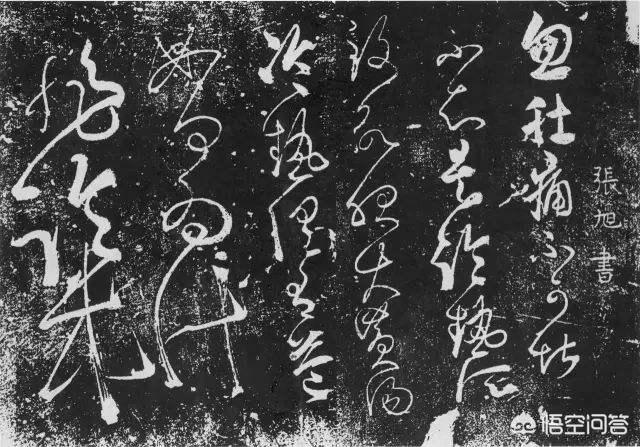 張旭書
忽肚痛不可堪
不知是冷熱所
致欲服大黃湯
冷熱俱有益
如何為計
悟空问答